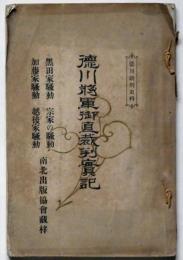 徳川時代史料
徳川將軍御直裁判實記
黒田家騒動 宗家の騒動
加藤家騒動 越後家騒動
南北出版協會蔵梓